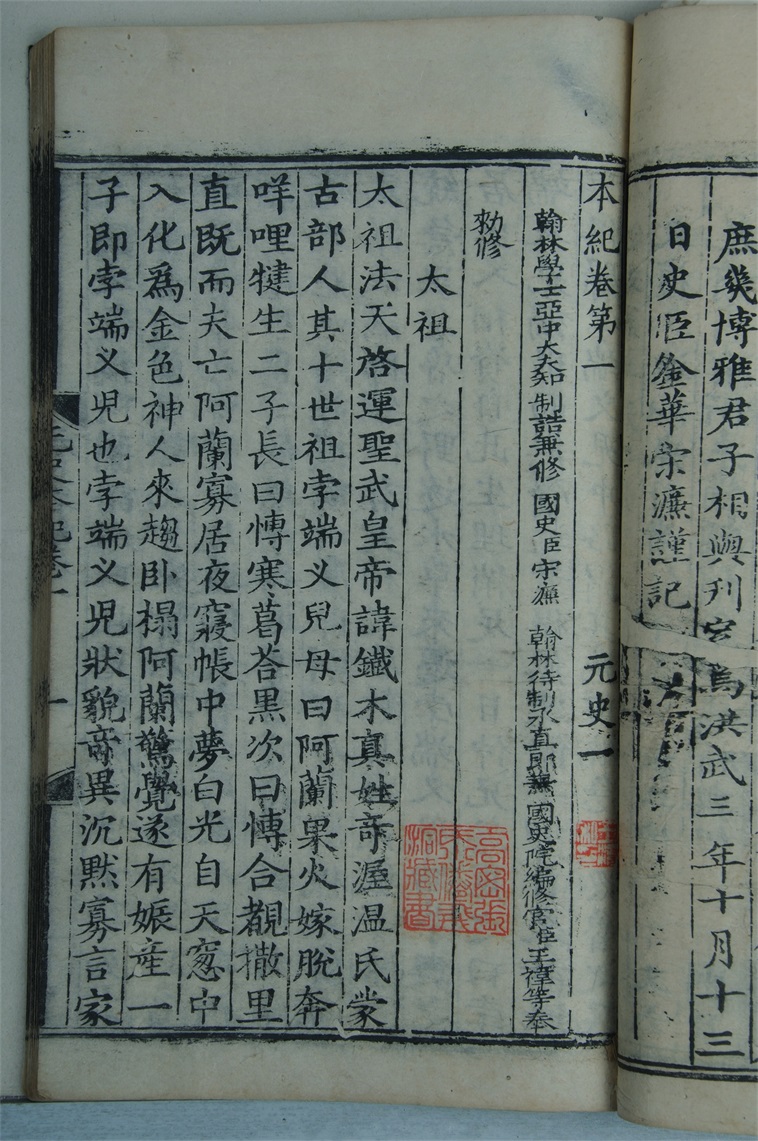 庶幾博雅君子相與刊定焉洪武三年十月十三
日史臣金華宋濂謹記
本紀卷第一 元史一
翰林學士亞中大夫知 制誥兼修 國史臣宋濂 翰林待制承直郎兼 國史院編修官臣王禕等奉
勑修
太祖
太祖法天啓運聖武皇帝諱鐵木真姓奇渥温氏蒙
古部人其十世祖孛端义兒母曰阿蘭果火嫁脫奔
咩哩犍生二子長曰愽寒葛荅黑次曰愽合覩撒里
直既而夫亡阿蘭寡居夜寢帳中夢白光自天窓中
入化爲金色神人來趨卧榻阿蘭驚覺遂有娠産一
子即孛端义兒也孛端义兒狀貌奇異沉默寡言家
元史本紀卷一 一